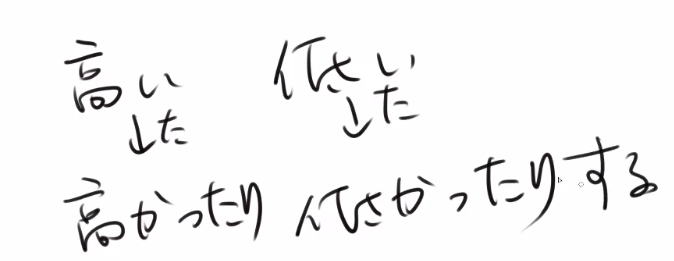 高い 低い
↓た ↓た
高かったり 低かったりする